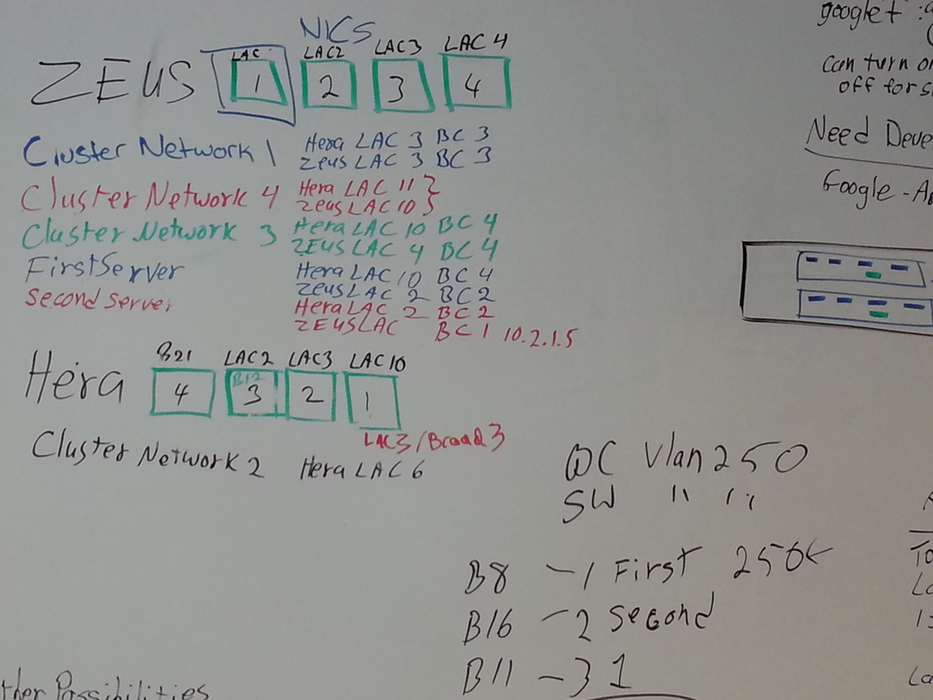 NICS
LAC LAC2 LAC3 LAC 4
ZEUS 1 2 3 4
Cluster Network 1 Hera LAC 3 BC 3
Zeus LAC 3 BC 3
Cluster Network 4 Hera LAC 11
Zeus LAC 10
Cluster Network 3 Hera LAC 10 BC 4
ZEUS LAC 4 BC 4
First Server Hera LAC 10 BC 4
Zeus LAC 2 BC 2
Second Server Hera LAC 2 BC 2
ZEUS LAC BC 1 10.2.1.5
B21 LAC2 LAC3 LAC10
B12
Hera 4 3 2 1
LAC3/Broad 3
Cluster Network 2 Hera LAC 6
QC Vlan 250
SW " "
B8 - 1 First 250
B16 - 2 Second
B11 - 3 1
ther Possibilities
google+ :
can turn o
off for s
Need Deve
Google-A